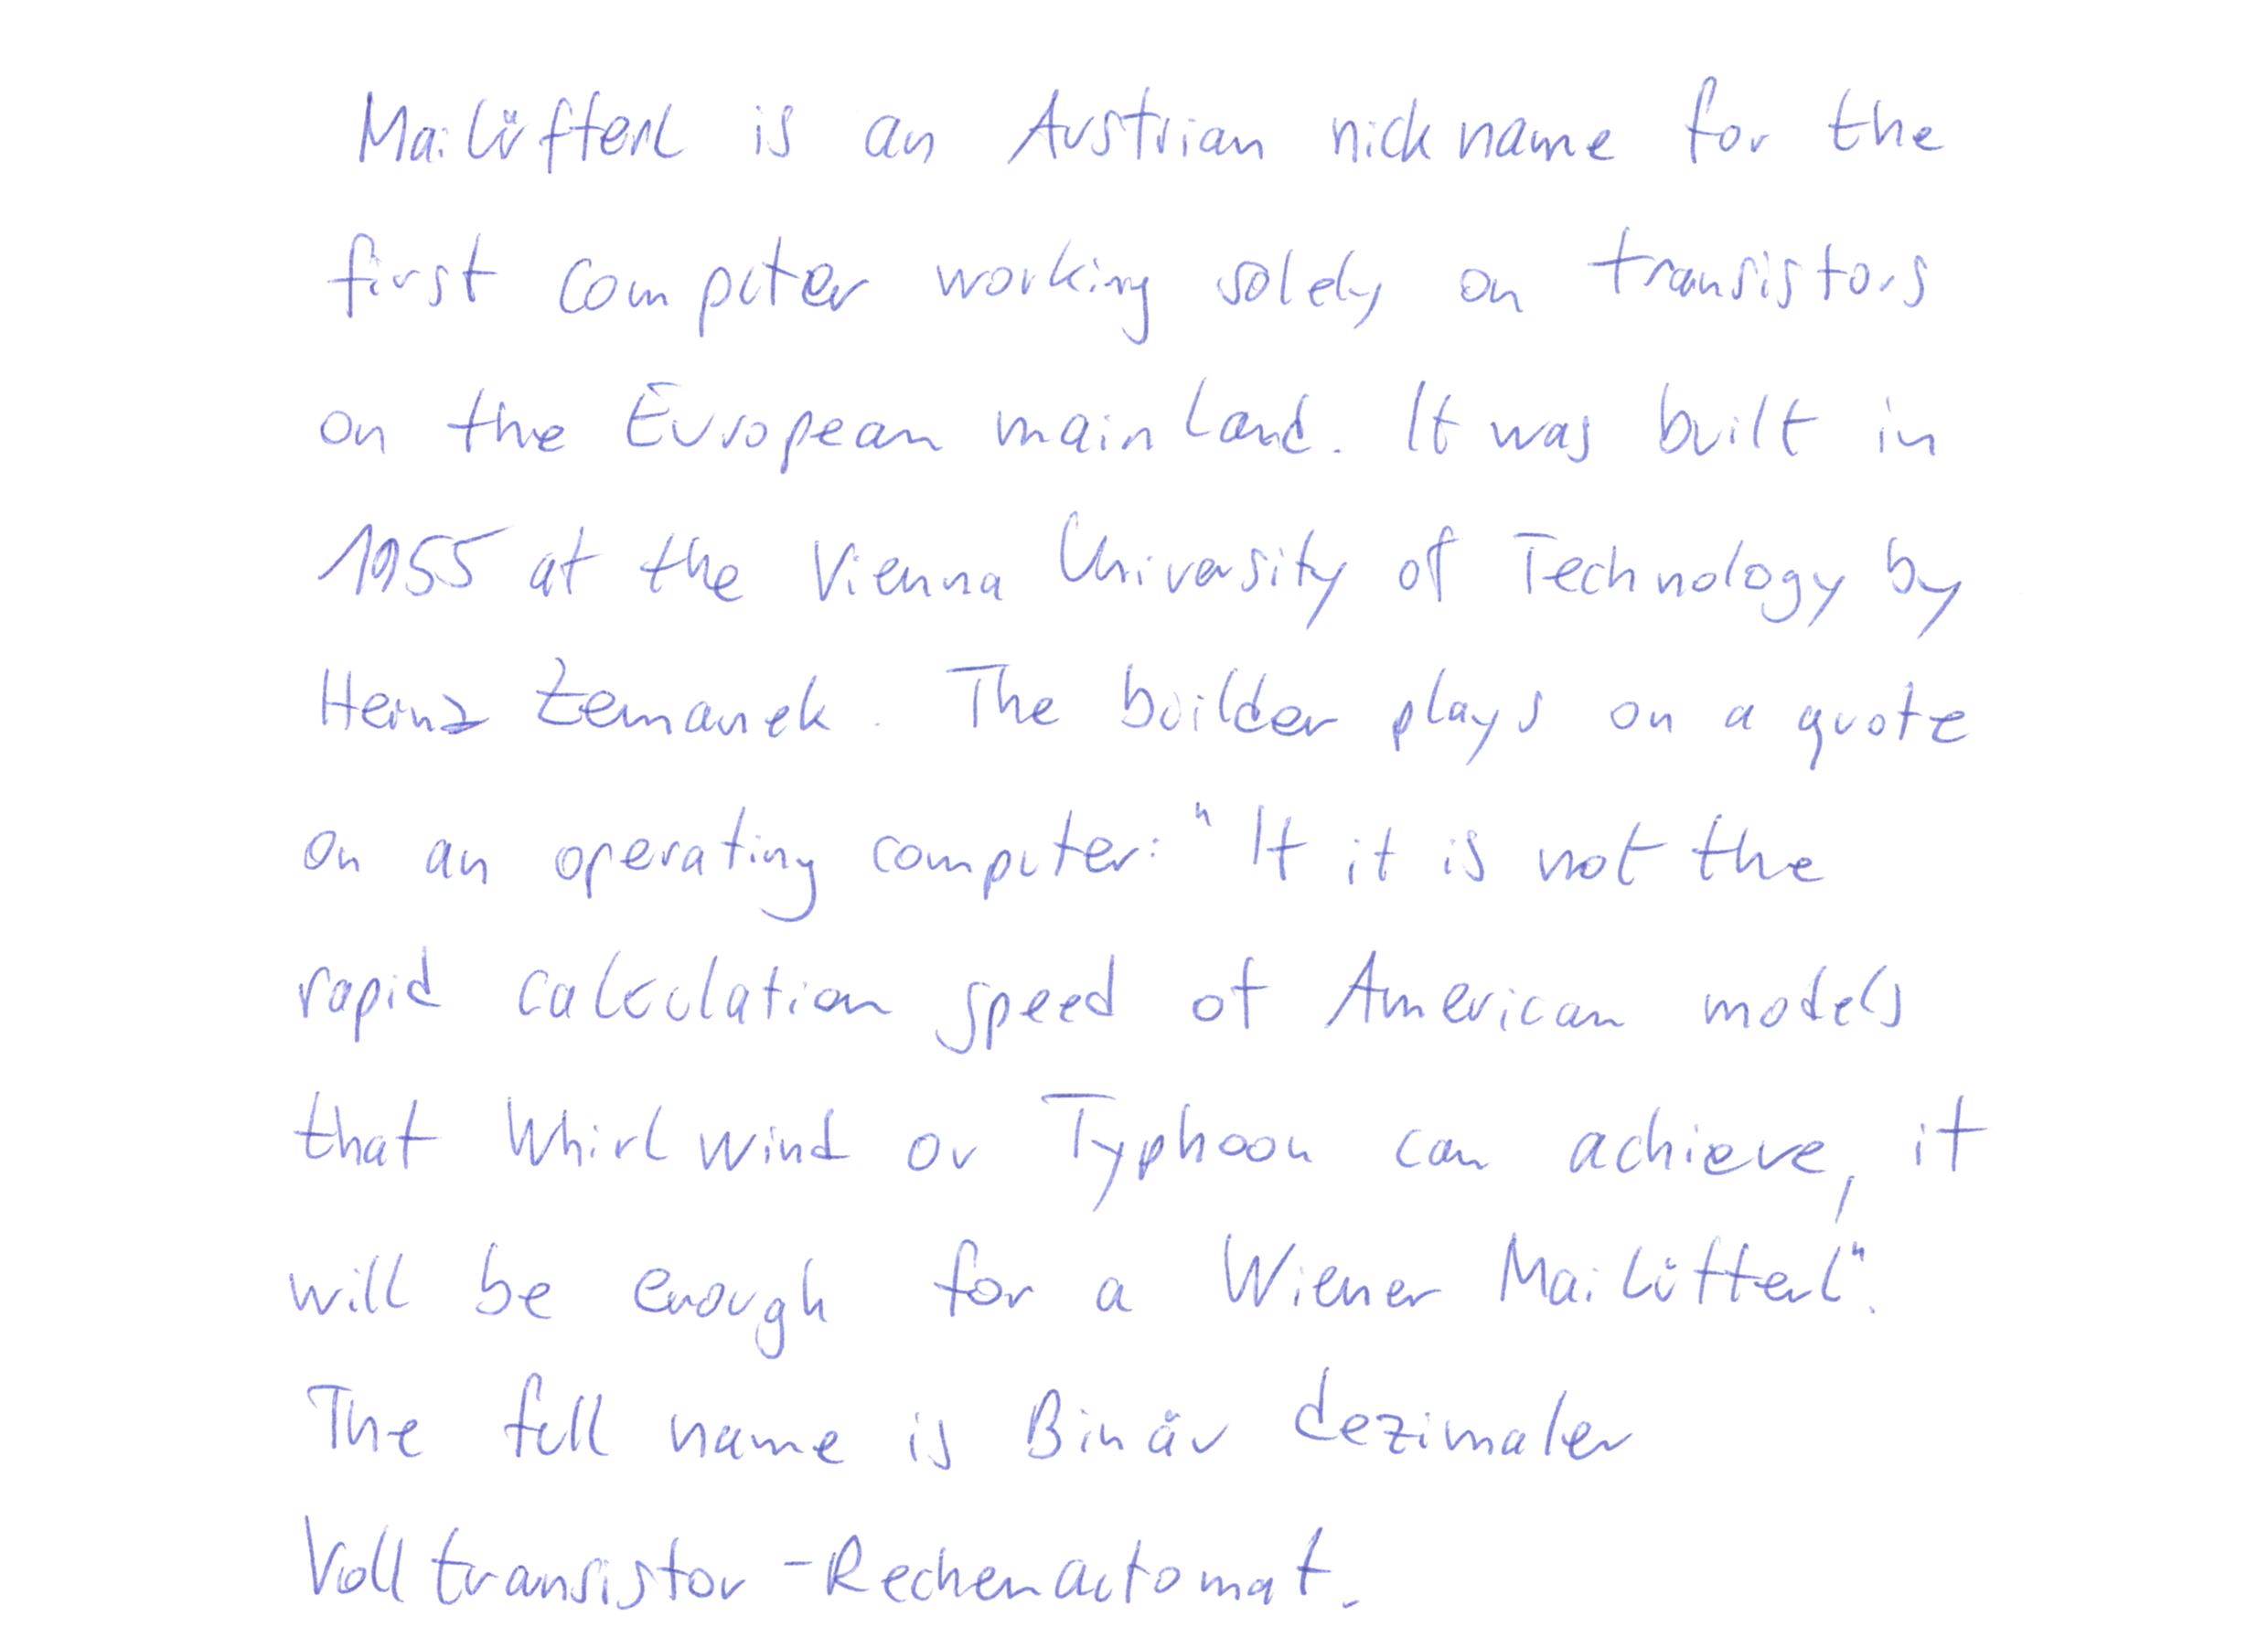 Mailüfterl is an Austrian nickname for the
first computer working solely on transistors
on the European mainland. It was built in
1955 at the Vienna University of Technology by
Heinz Zemanek. The builder plays on a quote
on an operating computer: "If it is not the
rapid calculation speed of American models
that Whirlwind or Typhoon can achieve, it
will be enough for a Wiener Mailüfterl".
The full name is Binär dezimaler
Volltransistor-Rechenautomat.